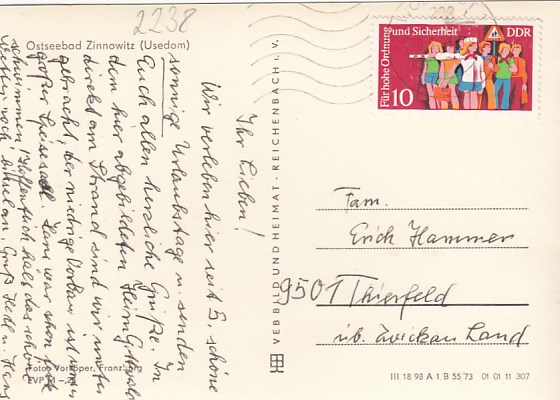 2238
Ostseebad Zinnowitz (Usedom)
Ihr Lieben!
Wir verleben hier seit 5. schöne
sonnige Urlaubstage u. senden
Euch allen herzliche Grüße. In
dem hier abgebildeten Heim
direkt am Strand sind wir unter
gebracht, der niedrige Vorbau ist unser
großer Speisesaal. Dann war schon
schwimmen! Hoffentlich hält das schöne
Wetter noch bissel an. Gruß Hedl u.
Foto: Vorköper, Franzburg
EVP M -,2
VEB BILD UND HEIMAT · REICHENBACH i. V.
Für hohe Ordnung und Sicherheit
DDR
10
Fam.
Erich Hammer
9501 Thierfeld
üb. Zwickau Land
III 18 93 A 1 B 55/73 01 01 11 307